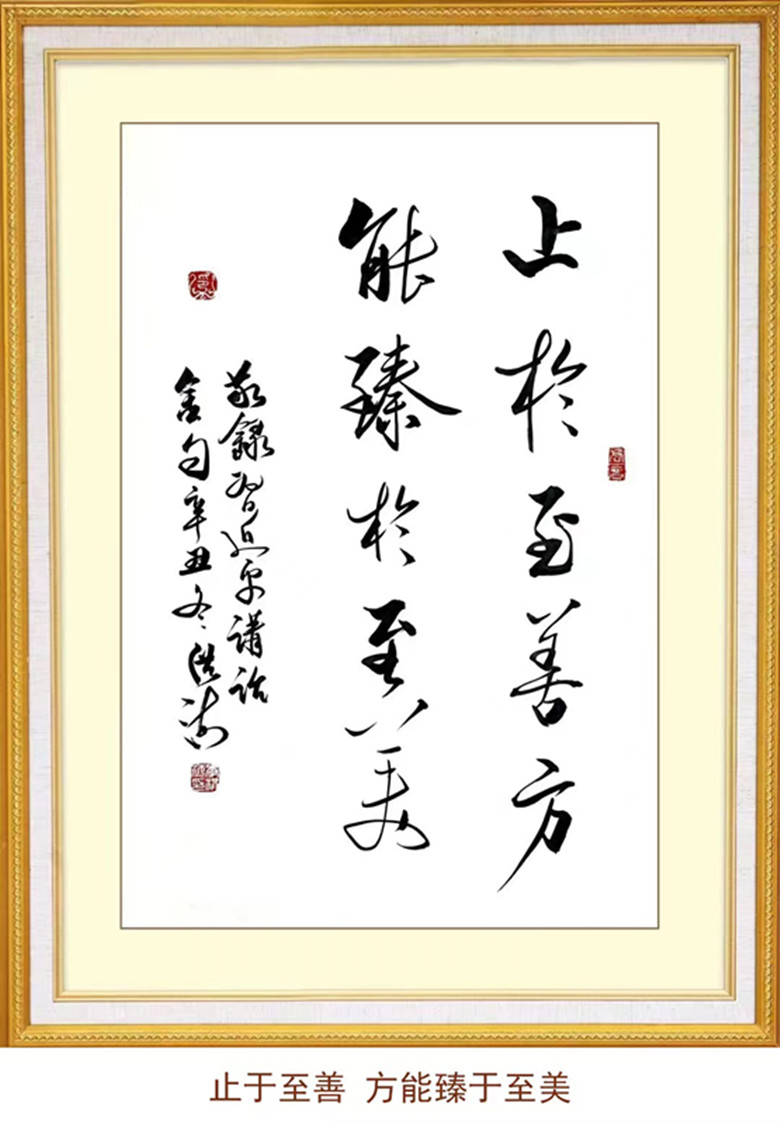 止於至善方
能臻於至美
敬錄習近平講話
金句辛丑冬洪
止于至善 方能臻于至美